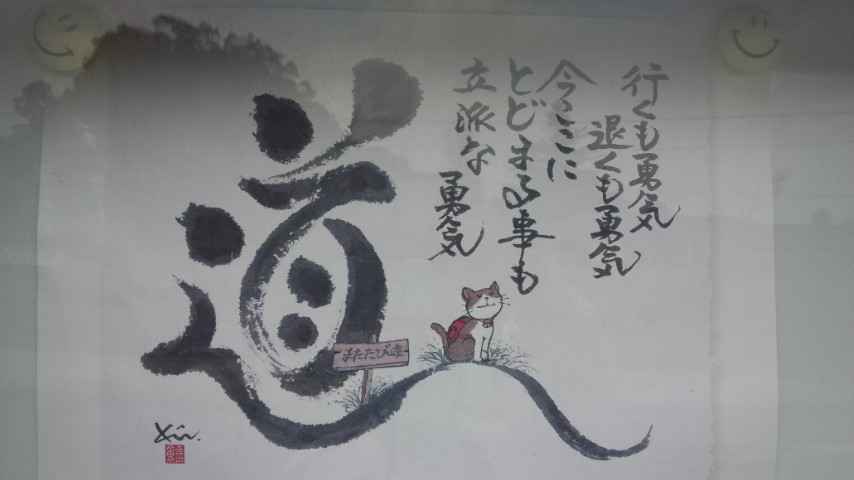 行くも勇気
退くも勇気
今ここに
とどまる事も
立派な
勇気
道
またたび峠